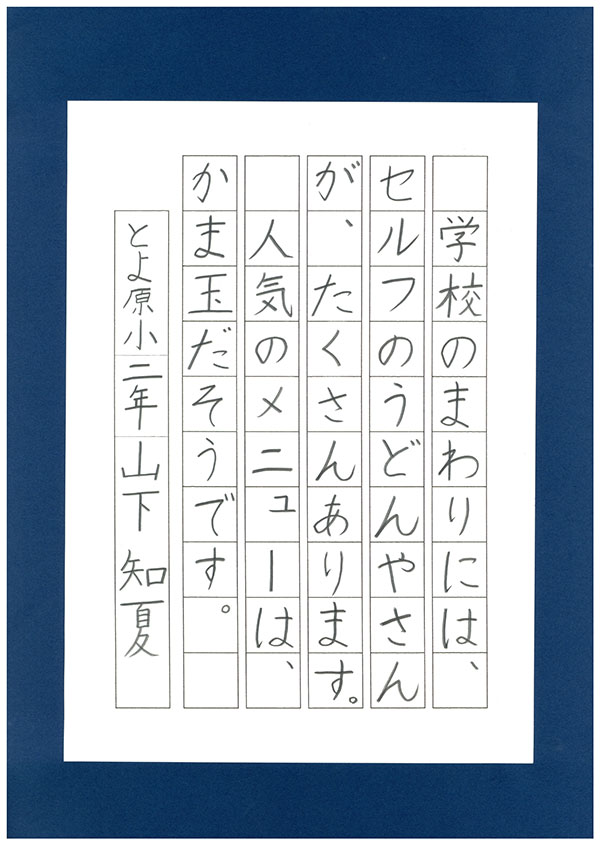 学校のまわりには、
セルフのうどんやさん
が、たくさんあります。
人気のメニューは、
かま玉だそうです。
とよ原小二年山下知夏